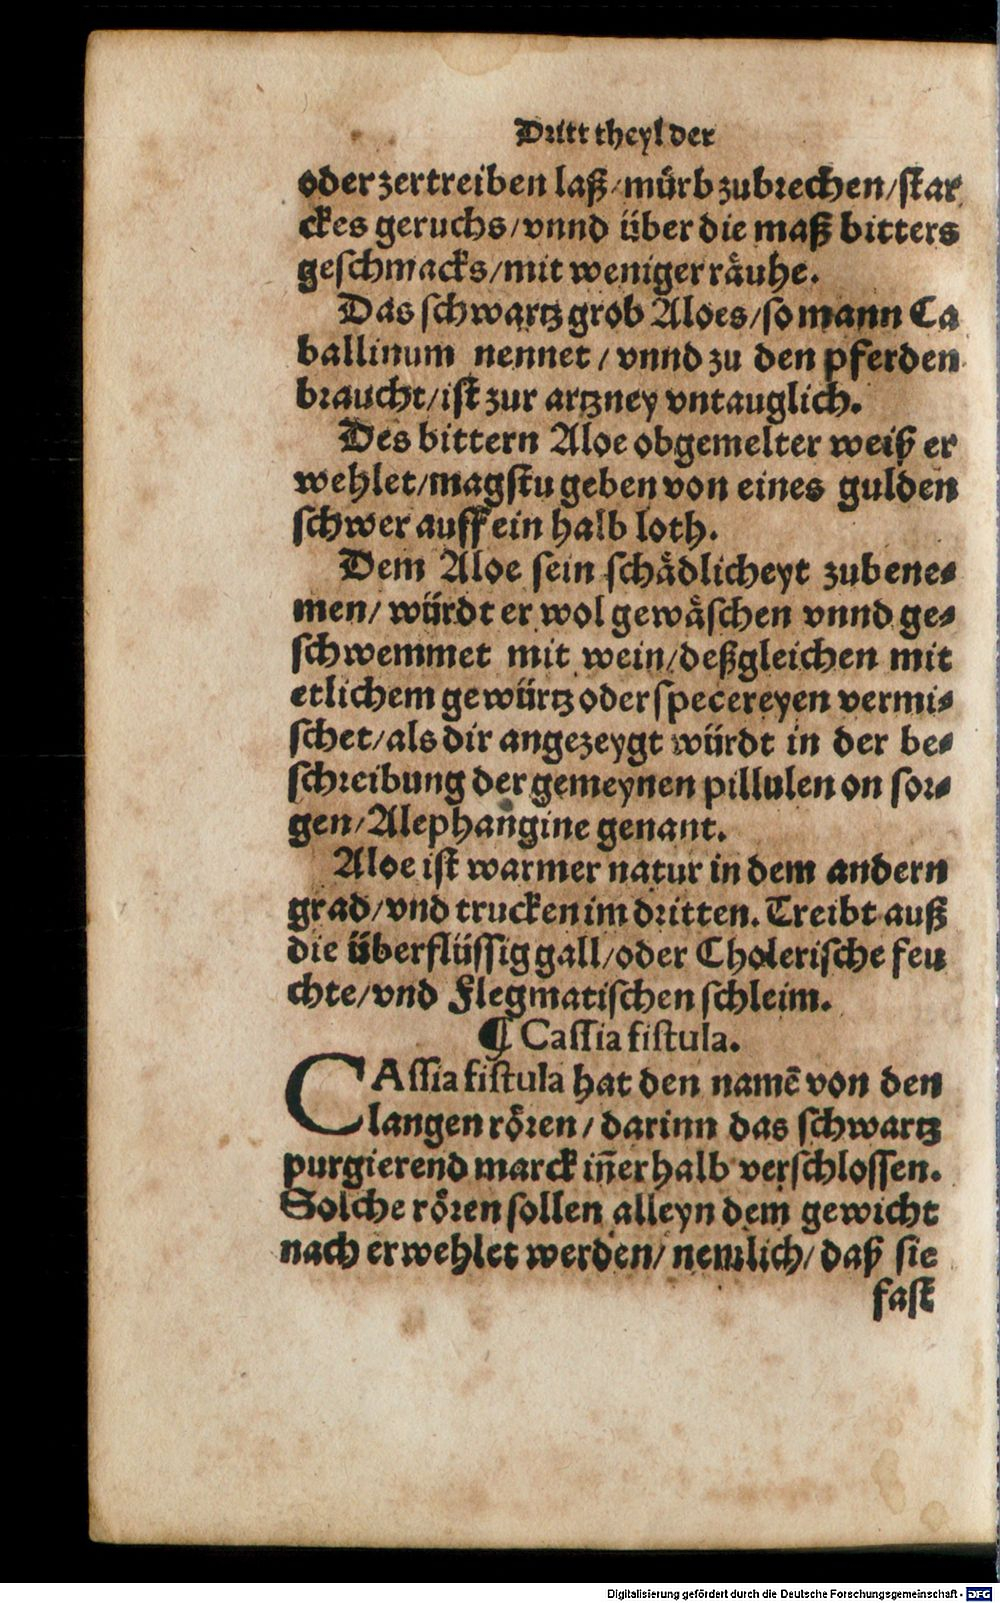 Dritt theyl der
oder zertreiben laß/mürb zubrechen/star
ckes geruchs/vnnd über die maß bitters
geschmacks/mit weniger räuhe.
Das schwartz grob Aloes/so mann Ca
ballinum nennet/vnnd zu den pferden
braucht/ist zur artzney vntauglich.
Des bittern Aloe obgemelter weiß er
wehlet/magstu geben von eines gulden
schwer auff ein halb loth.
Dem Aloe sein schädlicheyt zubene⸗
men/würdt er wol gewäschen vnnd ge⸗
schwemmet mit wein/deßgleichen mit
etlichem gewürtz oder specereyen vermi⸗
schet/als dir angezeygt würdt in der be⸗
schreibung der gemeynen pillulen on sor⸗
gen/Alephangine genant.
Aloe ist warmer natur in dem andern
grad/vnd trucken im dritten. Treibt auß
die überflüssig gall/oder Cholerische feu
chte/vnd Flegmatischen schleim.
¶ Cassia fistula.
CAssia fistula hat den namē von den
langen rören/darinn das schwartz
purgierend marck iñerhalb verschlossen.
Solche rören sollen alleyn dem gewicht
nach erwehlet werden/nemlich/daß sie
fast
Digitalisierung gefördert durch die Deutsche Forschungsgemeinschaft - DFG